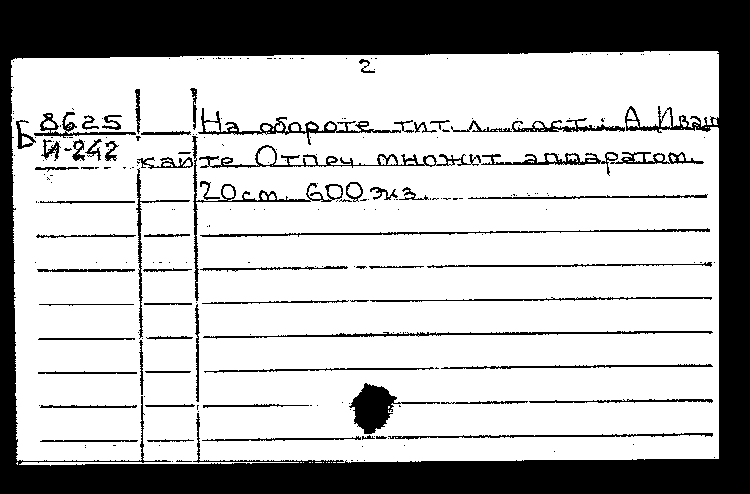 2
Б 8625 На обороте тит. л. сост.: А Иваш
И-242 кайте Отпеч. множит аппаратом.
20 см. 600 экз.